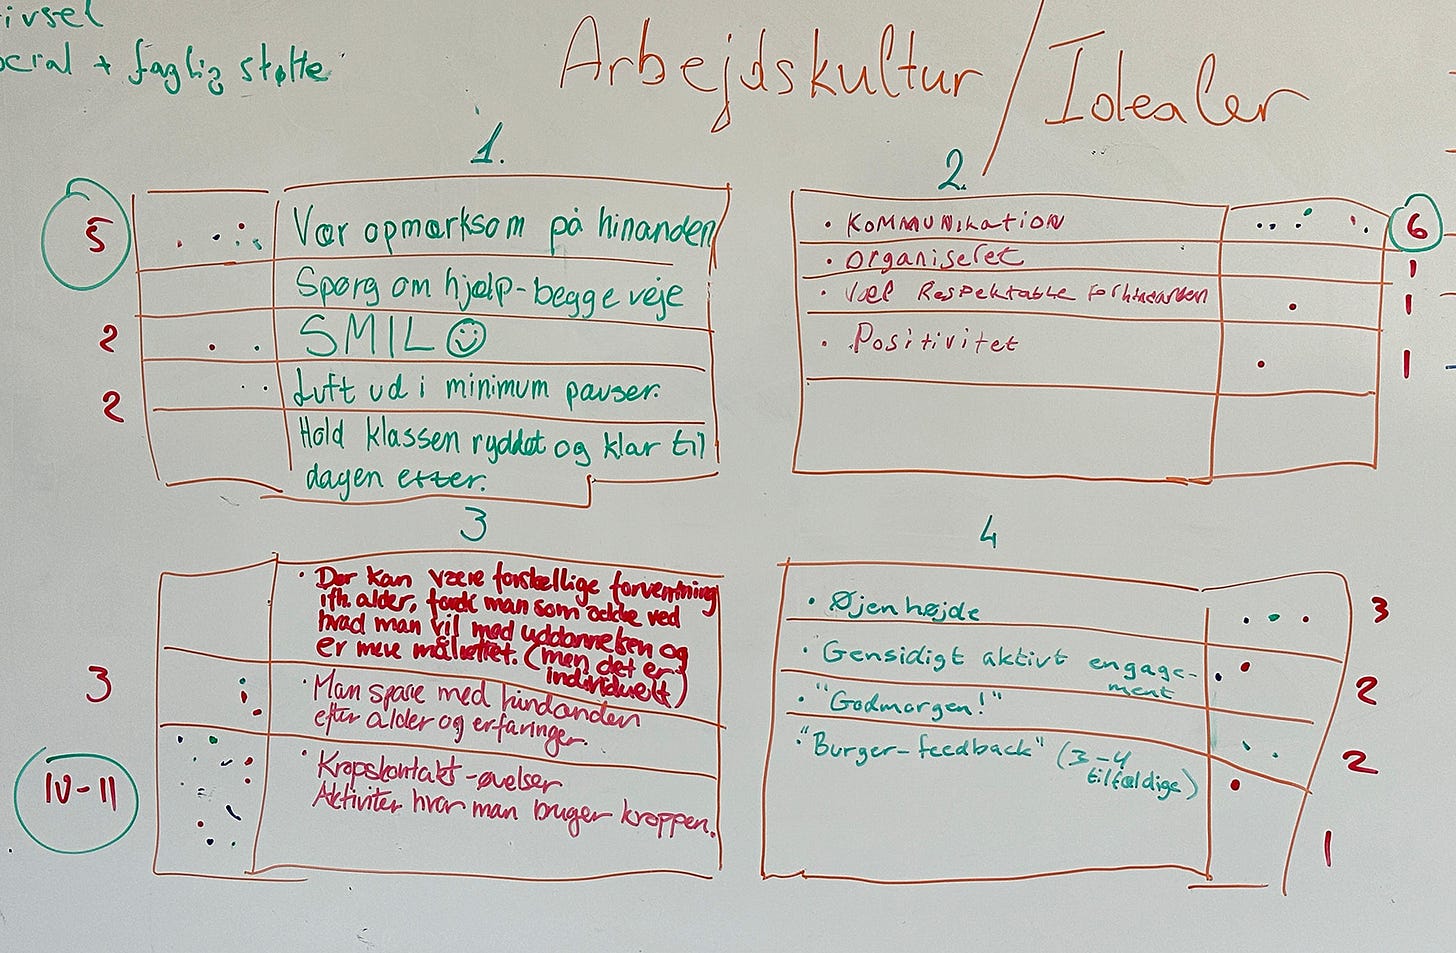 ivsel
+ faglig støtte
Arbejdskultur / Idealer
1.
5
Vær opmærksom på hinanden
Spørg om hjælp - begge veje
2
SMIL ☺
2
Luft ud i minimum pauser.
Hold klassen ryddet og klar til
dagen efter.
2.
• KOMMUNIKATION
6
• organiseret
1
• Vær Respektable for hinanden
1
• Positivitet
1
3
• Der kan være forskellige forventning
ifh. alder, fordi man som ældre ved
hvad man vil med uddannelsen og
er mere målrettet. (men det er
individuelt)
3
• Man spare med hindanden
efter alder og erfaringer.
10-11
• Kropskontakt-øvelser
Aktiviter hvor man bruger kroppen.
4
• Øjenhøjde
3
• Gensidigt aktivt engage-
ment
2
• "Godmorgen!"
2
• "Burger-feedback" (3-4
tilfældige)
1